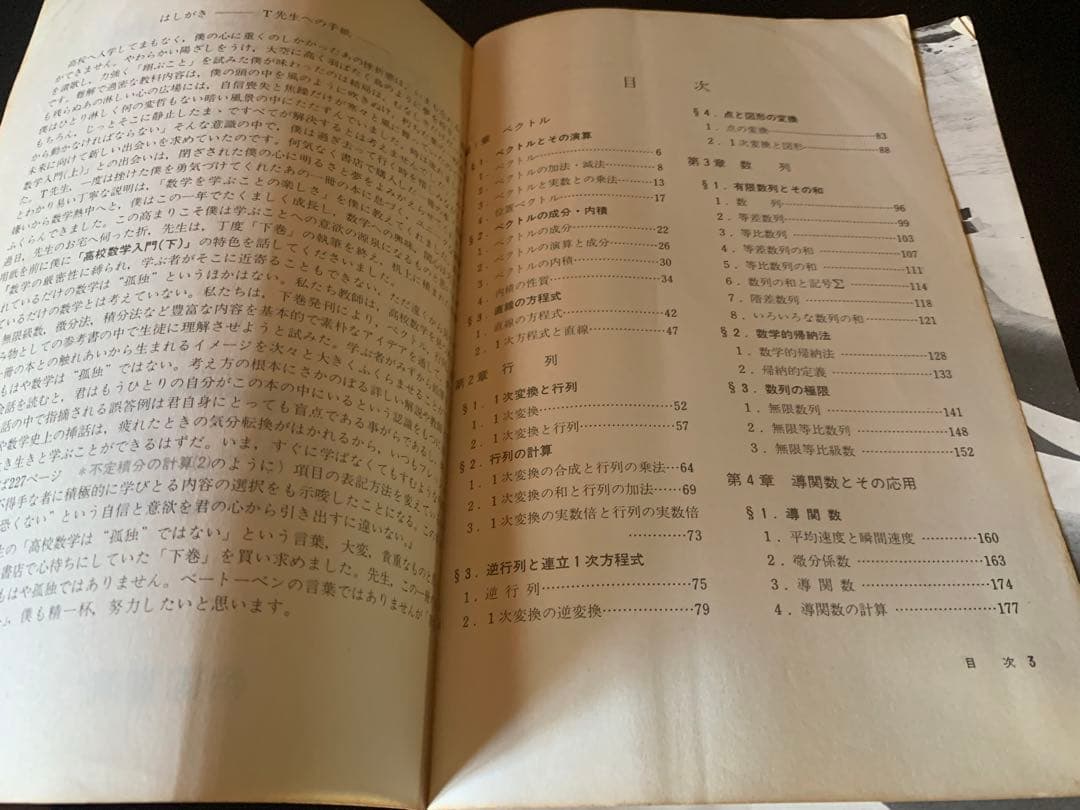 はしがき――T先生への手紙――
高校へ入学してまもなく，僕の心に重くのしかかったあの挫折感は
ができません。やわらかい陽ざしをうけ，大空に高く羽ばたく鳥のように
を讃歌し，力強く「翔ぶこと」を試みた僕が味わったのは結局は
です。難解で過密な教科内容は，僕の頭の中を風のように吹きぬけ
も残らぬあの淋しい心の広場には，自信喪失と焦躁だけが
僕はひとり淋しく何の変哲もない暗い風景の中にたたずんでいました。
もちろん，じっとそこに静止したまゝですべてが解決するとは考えません
から動かなければならない」そんな意識の中で，僕は過ぎ去って行く時を
未来に向けて新しい出会いを求めていたのです。何気なく書店で購入した
数学入門(上)」との出会いは，閉ざされた僕の心に明るさと夢をよみがえらせ
た。T先生，一度は挫けた僕を勇気づけてくれたあの一冊の本に
とわかり易い丁寧な説明は，「数学を学ぶことの楽しさ」を僕に教えてくれまし
から数学熱中へと，僕はこの一年でたくましく成長し，数学への興味，関心は
ふくらんできました。この高まりこそ僕は学ぶことへの意欲の源泉になるもの
過日，先生のお宅へ伺った折，先生は，丁度「下巻」の執筆を終え，机上に
用紙を前に僕に「高校数学入門(下)」の特色を話してくださいました。
「数学の厳密性に縛られ，学ぶ者がそこに近寄ることもできない，ただ遠くから
れているだけの数学は“孤独”というほかはない。私たち教師は，高校数学を
ているだけの数学とは考えていない。私たちは，下巻発刊により，ベクトル，行列
無限級数，微分法，積分法など豊富な内容を基本的で素朴なアイデアを通し
み物としての参考書の中で生徒に理解させようと試みた。学ぶ者がみずから
一冊の本との触れあいから生まれるイメージを次々と大きくふくらませること
もはや数学は“孤独”ではない。考え方の根本にさかのぼる詳しい解説や
会話を読むと，君はもうひとりの自分がこの本の中にいるという認識を
話の中で指摘される誤答例は君自身にとっても盲点である事がらである
や数学史上の挿話は，疲れたときの気分転換がはかれるから，いつも
き生きと学ぶことができるはずだ。いま，すぐに学ばなくてもすむような
ば227ページ ※不定積分の計算(2)のように）項目の表記方法を変えて
不得手な者に積極的に学びとる内容の選択をも示唆したことになる。この
恐くない”という自信と意欲を君の心から引き出すに違いない。」
生の「高校数学は“孤独”ではない」という言葉，大変，貴重なものと
書店で心待ちにしていた「下巻」を買い求めました。先生，この一冊
もはや孤独ではありません。ベートーベンの言葉ではありませんが
」，僕も精一杯，努力したいと思います。
目　次
章　ベクトル
§1．ベクトルとその演算
ベクトル……6
ベクトルの加法・減法……8
ベクトルと実数との乗法……13
位置ベクトル……17
§2．ベクトルの成分・内積
ベクトルの成分……22
ベクトルの演算と成分……26
ベクトルの内積……30
内積の性質……34
§3．直線の方程式
1．直線の方程式……42
2．1次方程式と直線……47
第2章　行　列
§1．1次変換と行列
1．1次変換……52
2．1次変換と行列……57
§2．行列の計算
1．1次変換の合成と行列の乗法…64
2．1次変換の和と行列の加法……69
3．1次変換の実数倍と行列の実数倍
……73
§3．逆行列と連立1次方程式
1．逆行列……75
2．1次変換の逆変換……79
§4．点と図形の変換
1．点の変換……83
2．1次変換と図形……88
第3章　数　列
§1．有限数列とその和
1．数　列……96
2．等差数列……99
3．等比数列……103
4．等差数列の和……107
5．等比数列の和……111
6．数列の和と記号Σ……114
7．階差数列……118
8．いろいろな数列の和……121
§2．数学的帰納法
1．数学的帰納法……128
2．帰納的定義……133
§3．数列の極限
1．無限数列……141
2．無限等比数列……148
3．無限等比級数……152
第4章　導関数とその応用
§1．導関数
1．平均速度と瞬間速度……160
2．微分係数……163
3．導関数……174
4．導関数の計算……177
目　次　3